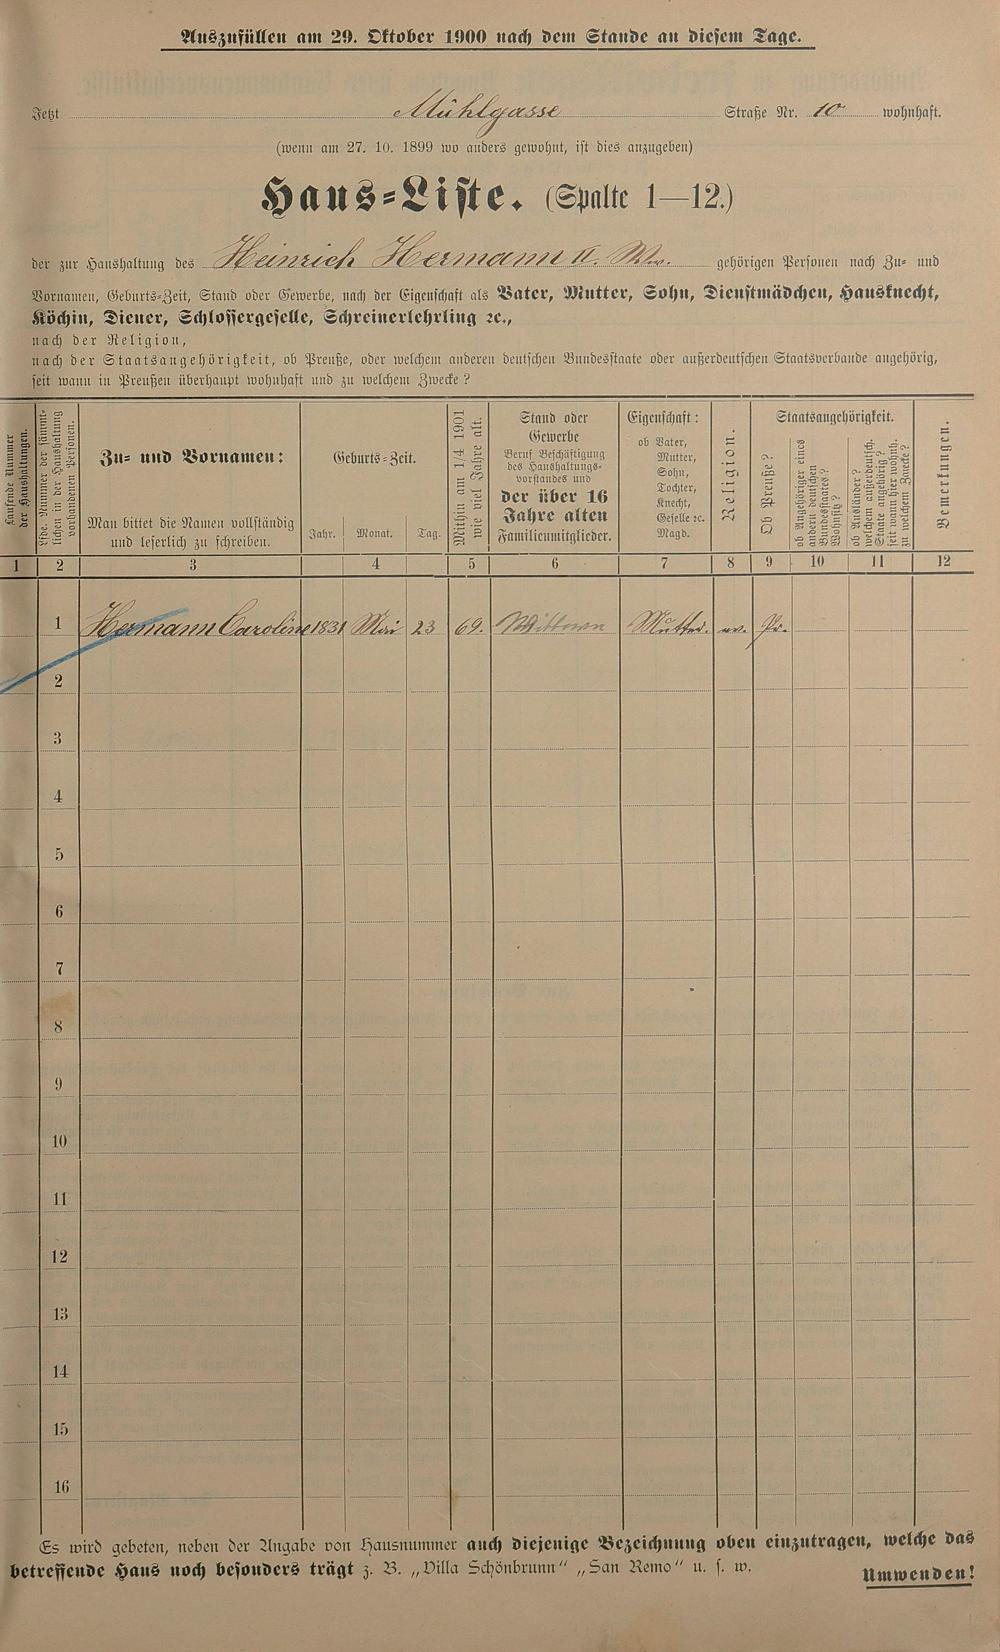 Auszufüllen am 29. Oktober 1900 nach dem Stande an diesem Tage.
Jetzt Mühlgasse Straße Nr. 10 wohnhaft.
(wenn am 27. 10. 1899 wo anders gewohnt, ist dies anzugeben)
Haus-Liste. (Spalte 1—12.)
der zur Haushaltung des Heinrich Hermann II. Ww. gehörigen Personen nach Zu- und
Vornamen, Geburts-Zeit, Stand oder Gewerbe, nach der Eigenschaft als Vater, Mutter, Sohn, Dienstmädchen, Hausknecht,
Köchin, Diener, Schlossergeselle, Schreinerlehrling ꝛc.,
nach der Religion,
nach der Staatsangehörigkeit, ob Preuße, oder welchem anderen deutschen Bundesstaate oder außerdeutschen Staatsverbande angehörig,
seit wann in Preußen überhaupt wohnhaft und zu welchem Zwecke?
Laufende Nummer
der Haushaltungen.
Lfde. Nummer der sämmt-
lichen in der Haushaltung
vorhandenen Personen.
Zu- und Vornamen:
Man bittet die Namen vollständig
und leserlich zu schreiben.
Geburts-Zeit.
Jahr. Monat. Tag.
Mithin am 1/4 1901
wie viel Jahre alt.
Stand oder
Gewerbe
Beruf Beschäftigung
des Haushaltungs-
vorstandes und
der über 16
Jahre alten
Familienmitglieder.
Eigenschaft:
ob Vater,
Mutter,
Sohn,
Tochter,
Knecht,
Geselle ꝛc.
Magd.
Religion.
Staatsangehörigkeit.
Ob Preuße?
ob Angehöriger eines
andern deutschen
Bundesstaates?
Wohnsitz?
ob Ausländer?
welchem außerdeutsch.
Staate angehörig?
seit wann hier wohnh.
zu welchem Zwecke?
Bemerkungen.
1 2 3 4 5 6 7 8 9 10 11 12
1 Hermann Caroline 1831 Mai 23 69. Wittwe Mutter. ev. Pr.
2
3
4
5
6
7
8
9
10
11
12
13
14
15
16
Es wird gebeten, neben der Angabe von Hausnummer auch diejenige Bezeichnung oben einzutragen, welche das
betreffende Haus noch besonders trägt z. B. „Villa Schönbrunn“ „San Remo“ u. s. w.
Umwenden!